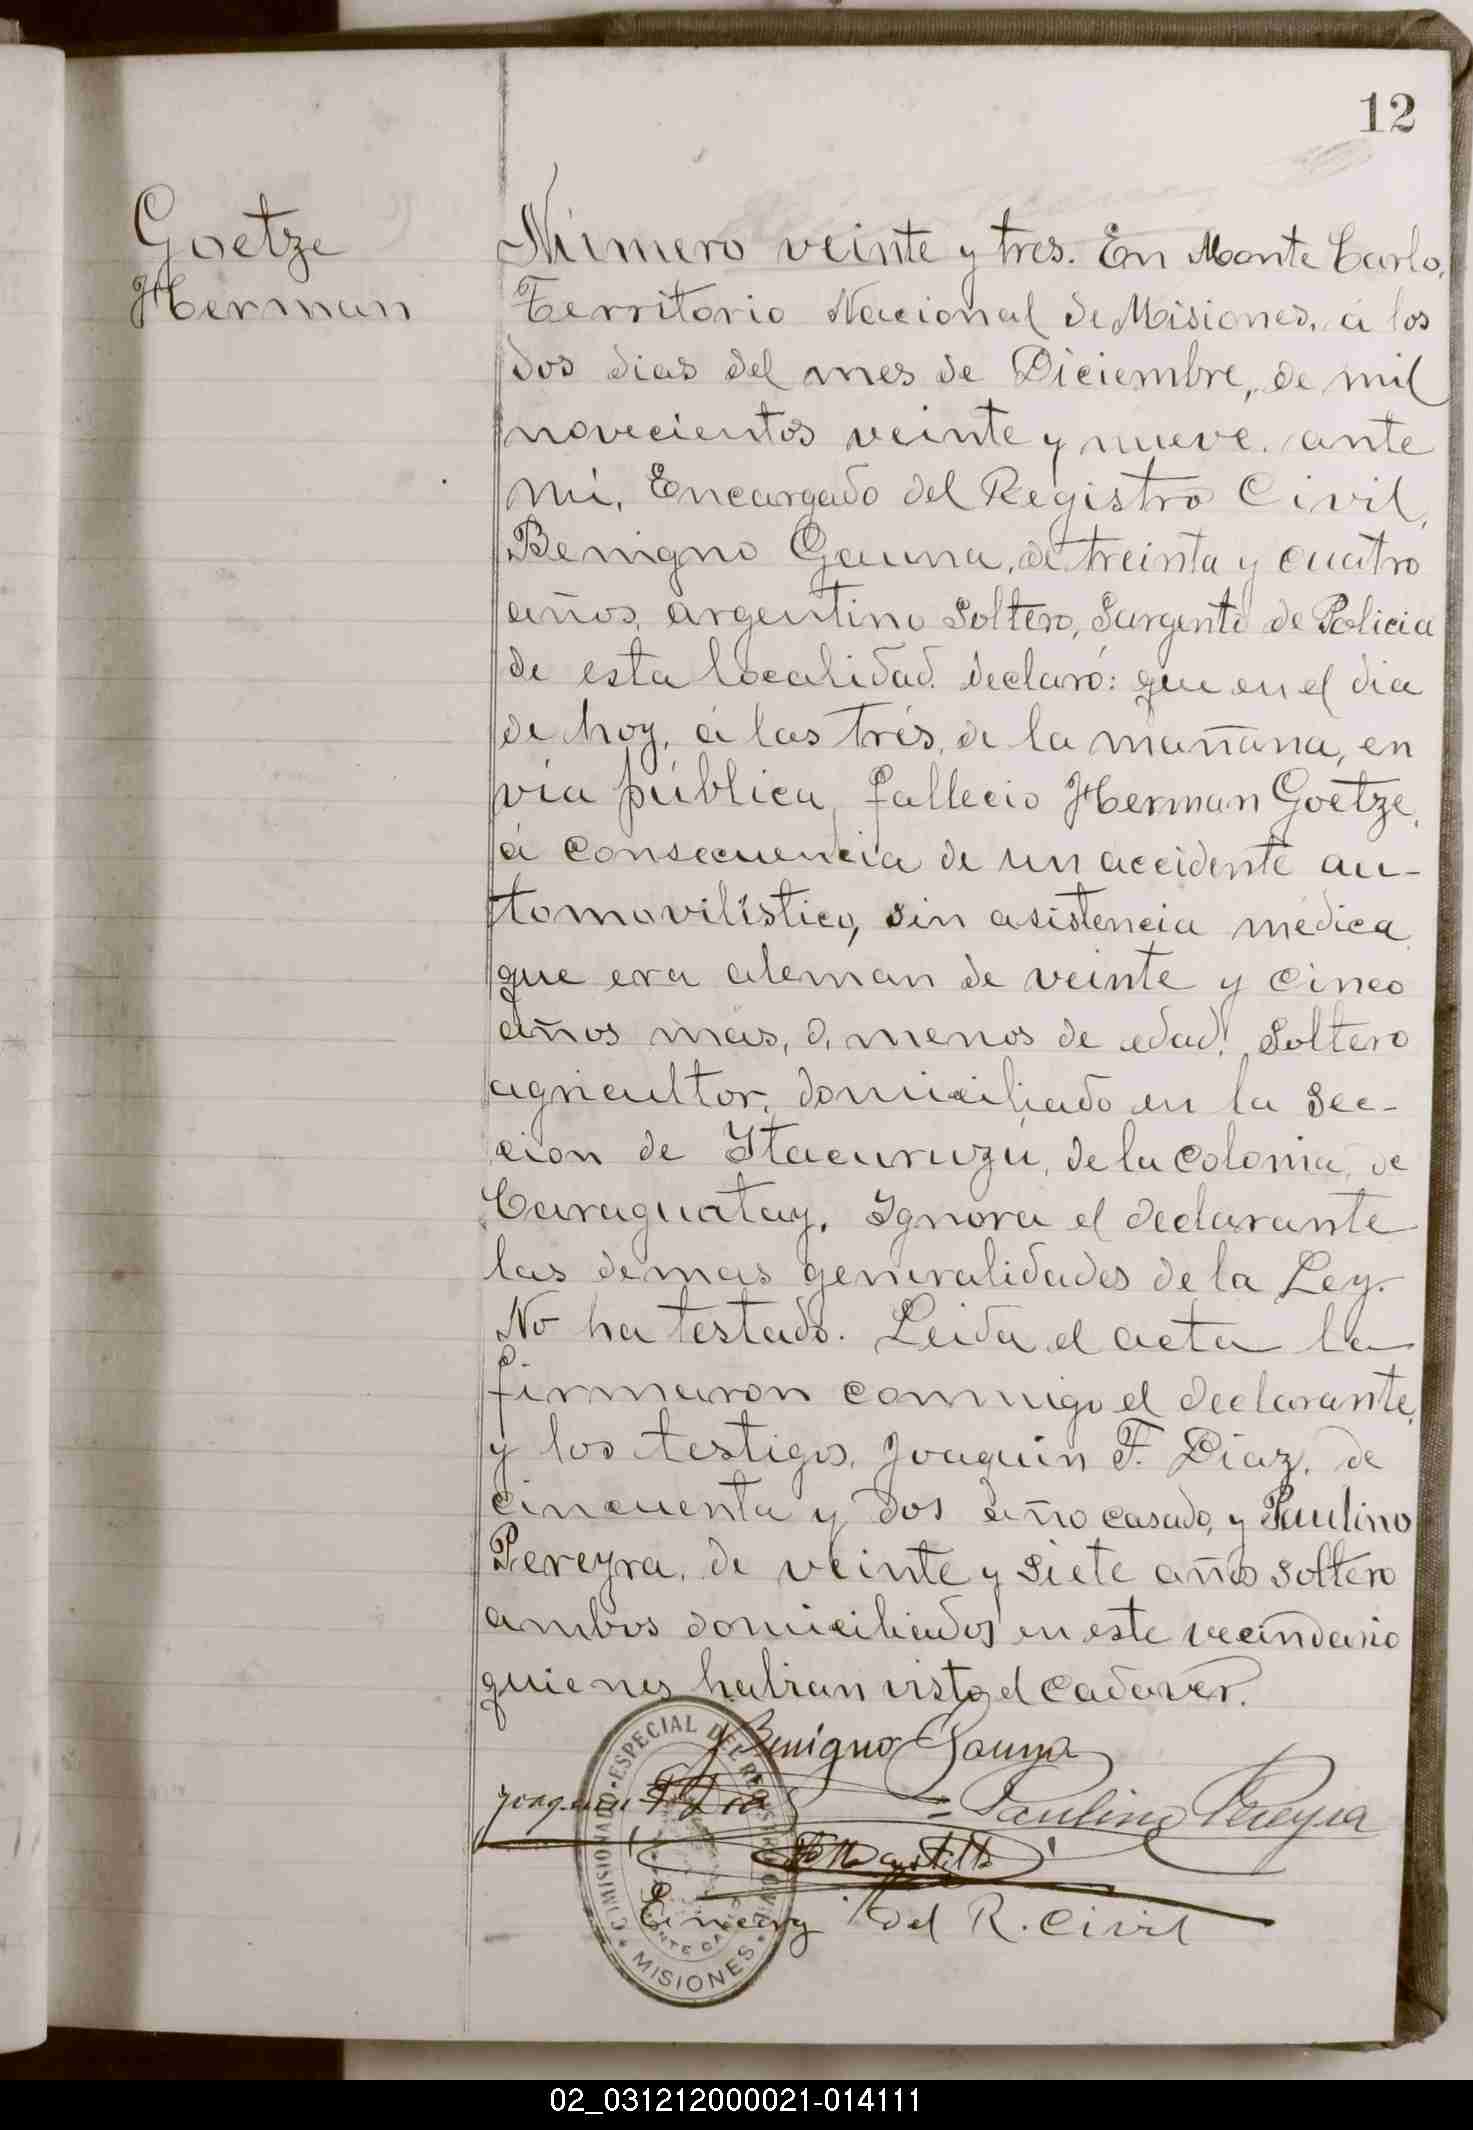 12
Goetze
Herman
Número veinte y tres. En Monte Carlo,
Territorio Nacional de Misiones, á los
dos dias del mes de Diciembre, de mil
novecientos veinte y nueve. ante
mi, Encargado del Registro Civil,
Benigno Gauna, de treinta y cuatro
años, argentino Soltero, Sargento de Policia
de esta localidad. declaró: que en el dia
de hoy, á las trés, de la mañana, en
via pública, fallecio Herman Goetze,
á consecuencia de un accidente au-
tomovilístico, sin asistencia médica
que era aleman de veinte y cinco
años más, o, menos de edad! Soltero
agricultor, domiciliado en la Sec-
cion de Itacuruzú, de la Colonia, de
Caraguatay. Ignora el declarante
las demas generalidades de la Ley.
No ha testado. Leida el acta la
firmaron conmigo el declarante,
y los testigos, Joaquin F. Diaz, de
cincuenta y dos año casado, y Paulino
Pereyra, de veinte y siete años soltero
ambos domiciliados en este vecindario
quienes habian visto el cadaver.
Benigno Gauna
Joaquin F Diaz
Paulino Pereyra
Encarg del R. Civil
COMISIONADO ESPECIAL DEL REGISTRO CIVIL
MONTE CARLO
MISIONES
02_031212000021-014111